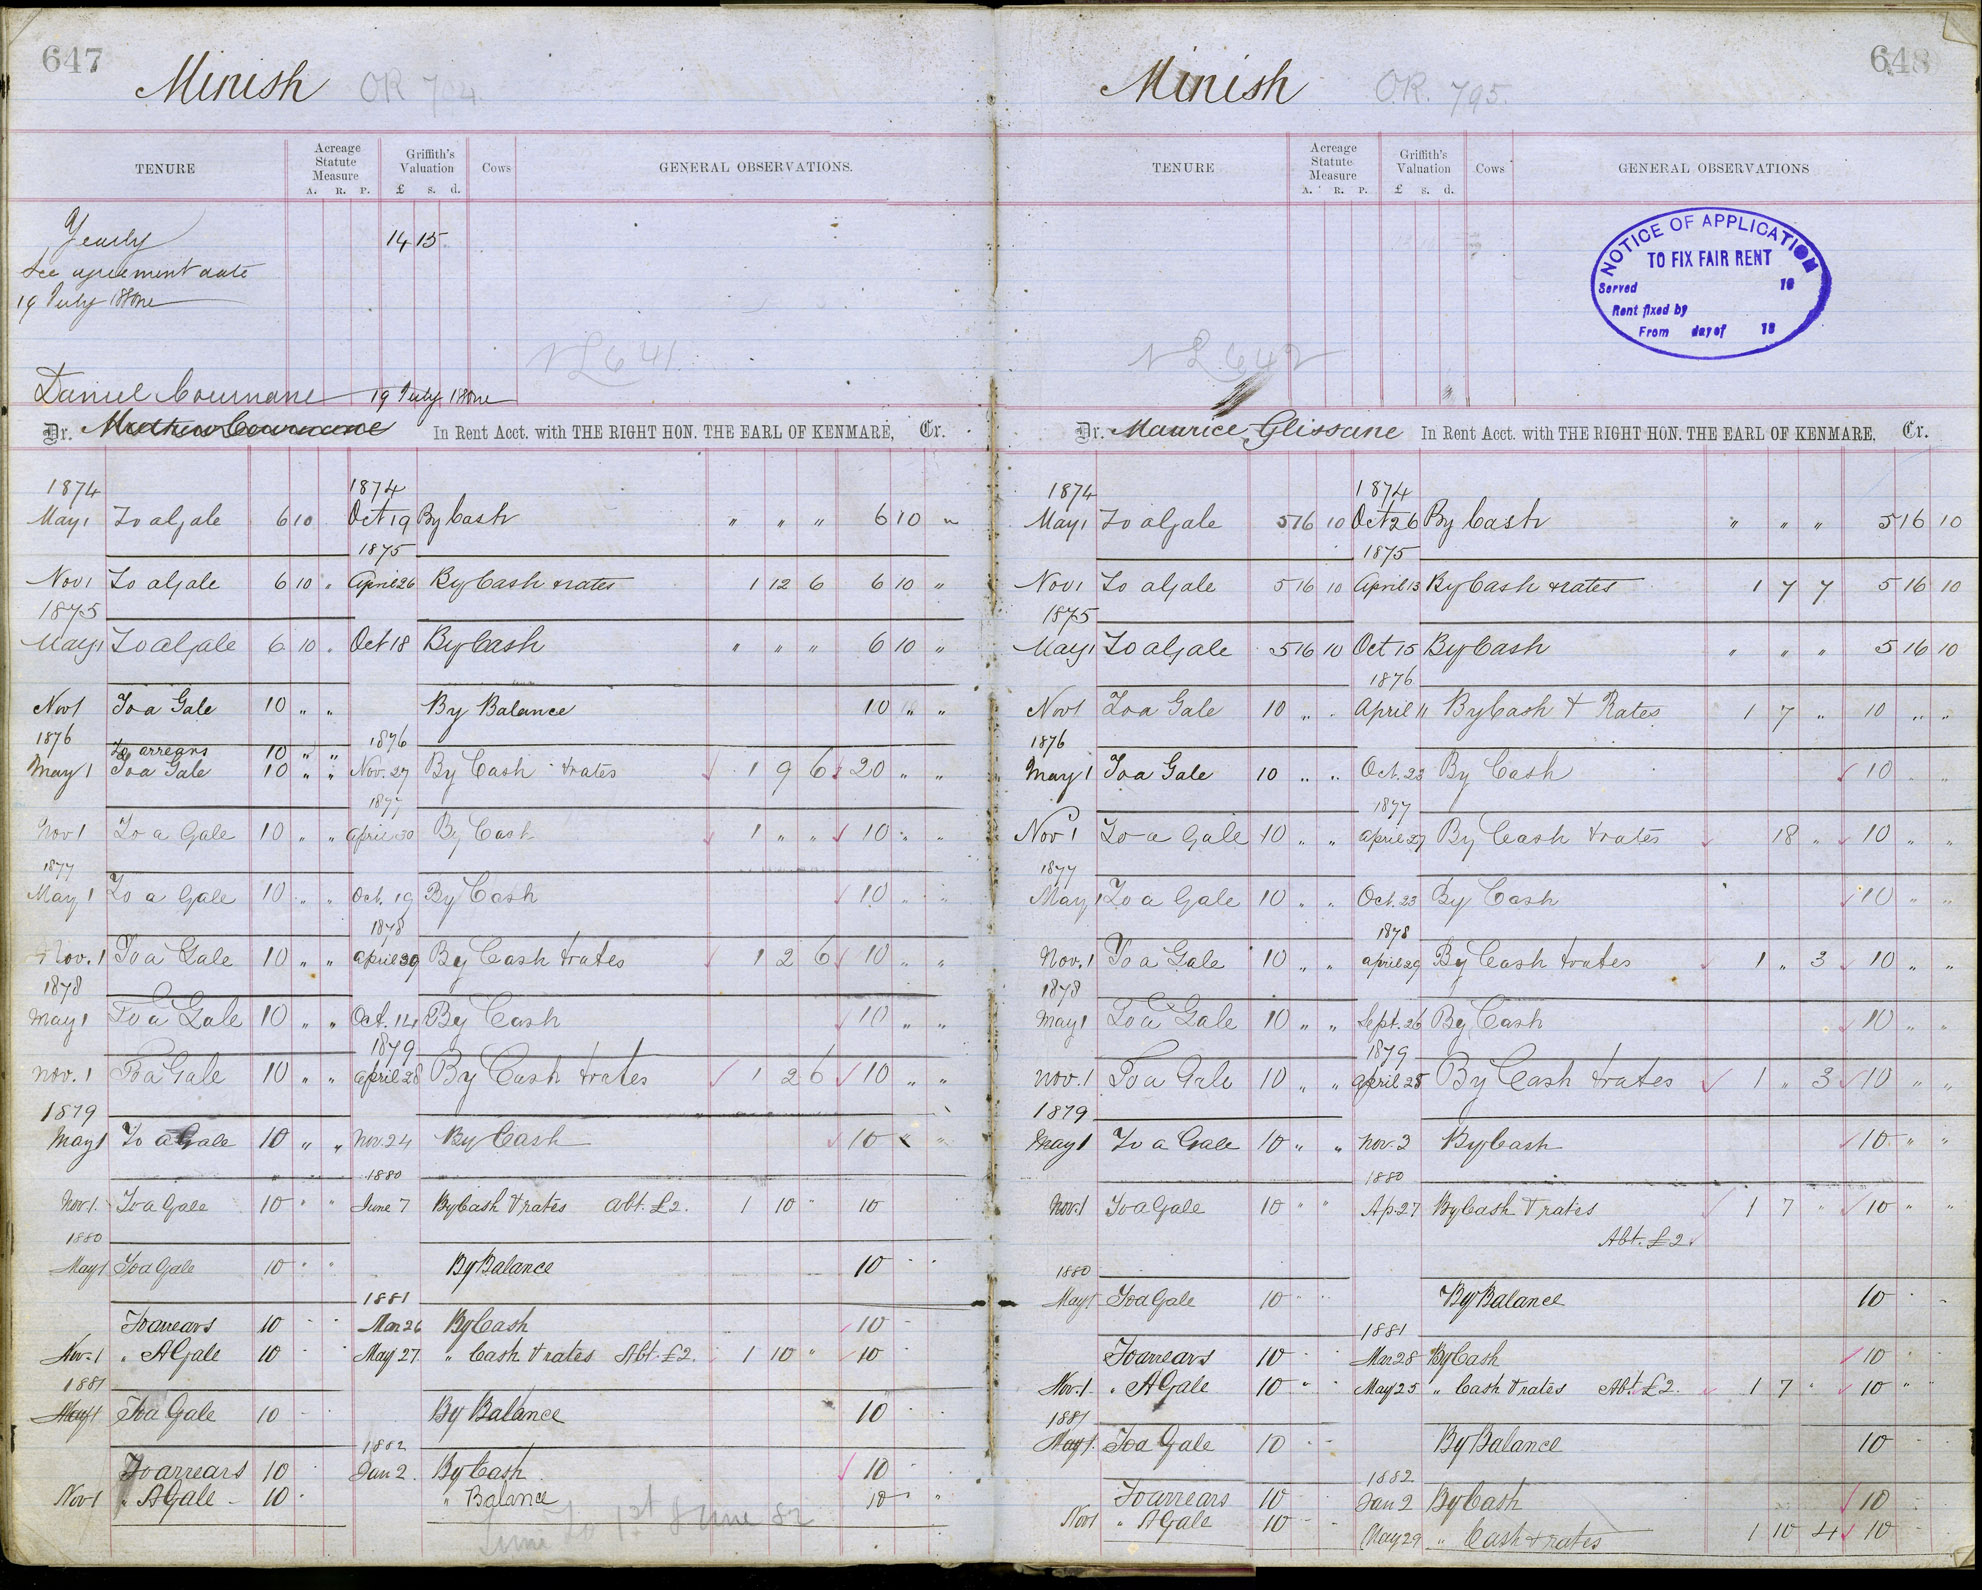 647
Minish OR 704
TENURE Acreage Statute Measure A. R. P. Griffith's Valuation £ s. d. Cows GENERAL OBSERVATIONS.
Yearly 14 15
See agreement date
19 July
N L 641
Daniel Cournane 19 July
Dr. Mathew Cournane In Rent Acct. with THE RIGHT HON. THE EARL OF KENMARE, Cr.
1874 1874
May 1 To a Gale 6 10 Oct 19 By Cash " " " 6 10 "
1875
Nov 1 To a Gale 6 10 " April 26 By Cash & rates 1 12 6 6 10 "
1875
May 1 To a Gale 6 10 " Oct 18 By Cash " " " 6 10 "
Nov 1 To a Gale 10 " " By Balance 10 " "
1876 1876
To arrears 10 " "
May 1 To a Gale 10 " " Nov. 27 By Cash & rates 1 9 6 20 " "
1877
Nov 1 To a Gale 10 " " April 30 By Cash 1 " " 10 " "
1877
May 1 To a Gale 10 " " Oct. 19 By Cash 10 " "
1878
Nov. 1 To a Gale 10 " " April 30 By Cash & rates 1 2 6 10 " "
1878
May 1 To a Gale 10 " " Oct. 14 By Cash 10 " "
1879
Nov. 1 To a Gale 10 " " April 28 By Cash & rates 1 2 6 10 " "
1879
May 1 To a Gale 10 " " Nov. 24 By Cash 10 " "
1880
Nov. 1 To a Gale 10 " " June 7 By Cash & rates Abt. £2. 1 10 " 10
1880
May 1 To a Gale 10 " " By Balance 10 " "
1881
To arrears 10 " " Mar 26 By Cash 10 "
Nov. 1 " A Gale 10 " " May 27 " Cash & rates Abt. £2. 1 10 " 10 "
1881
May 1 To a Gale 10 " By Balance 10 "
1882
To arrears 10 " Jan 2 By Cash 10 "
Nov 1 " A Gale 10 " " Balance 10 " "
Time to 1st June 82
648
Minish O.R. 795.
TENURE Acreage Statute Measure A. R. P. Griffith's Valuation £ s. d. Cows GENERAL OBSERVATIONS
NOTICE OF APPLICATION
TO FIX FAIR RENT
Served 18
Rent fixed by
From day of 18
N L 642
Dr. Maurice Glissane In Rent Acct. with THE RIGHT HON. THE EARL OF KENMARE, Cr.
1874 1874
May 1 To a Gale 5 16 10 Oct 26 By Cash " " " 5 16 10
1875
Nov 1 To a Gale 5 16 10 April 13 By Cash & rates 1 7 7 5 16 10
1875
May 1 To a Gale 5 16 10 Oct 15 By Cash " " " 5 16 10
1876
Nov 1 To a Gale 10 " " April 11 By Cash & Rates 1 7 " 10 " "
1876
May 1 To a Gale 10 " " Oct. 23 By Cash 10 " "
1877
Nov 1 To a Gale 10 " " April 27 By Cash & rates 18 " 10 " "
1877
May 1 To a Gale 10 " " Oct. 23 By Cash 10 " "
1878
Nov. 1 To a Gale 10 " " April 29 By Cash & rates 1 " 3 10 " "
1878
May 1 To a Gale 10 " " Sept. 26 By Cash 10 " "
1879
Nov. 1 To a Gale 10 " " April 28 By Cash & rates 1 " 3 10 " "
1879
May 1 To a Gale 10 " " Nov. 3 By Cash 10 " "
1880
Nov. 1 To a Gale 10 " " Ap 27 By Cash & rates 1 7 " 10 " "
Abt. £2.
1880
May 1 To a Gale 10 " " By Balance 10 " "
1881
To arrears 10 " " Mar 28 By Cash 10 "
Nov. 1 " A Gale 10 " " May 25 " Cash & rates Abt. £2. 1 7 " 10 " "
1881
May 1 To a Gale 10 " " By Balance 10 "
1882
To arrears 10 " Jan 2 By Cash 10
Nov 1 " A Gale 10 " May 29 " Cash & rates 1 10 4 10 "